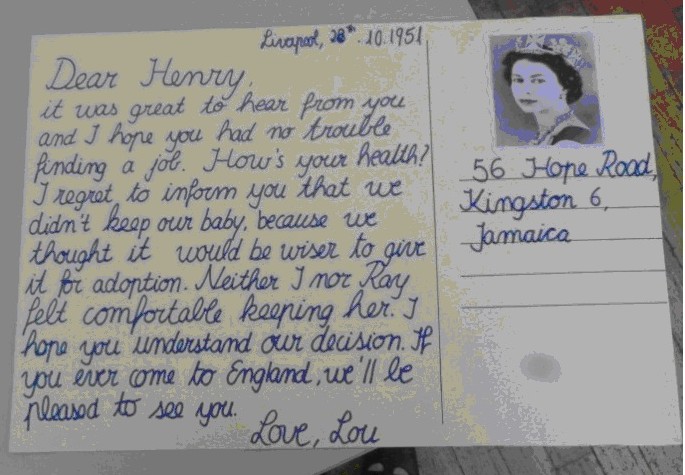 Liverpool, 28th. 10.1951
Dear Henry,
it was great to hear from you
and I hope you had no trouble
finding a job. How's your health?
I regret to inform you that we
didn't keep our baby, because we
thought it would be wiser to give
it for adoption. Neither I nor Ray
felt comfortable keeping her. I
hope you understand our decision. If
you ever come to England, we'll be
pleased to see you.
Love, Lou
56 Hope Road,
Kingston 6,
Jamaica